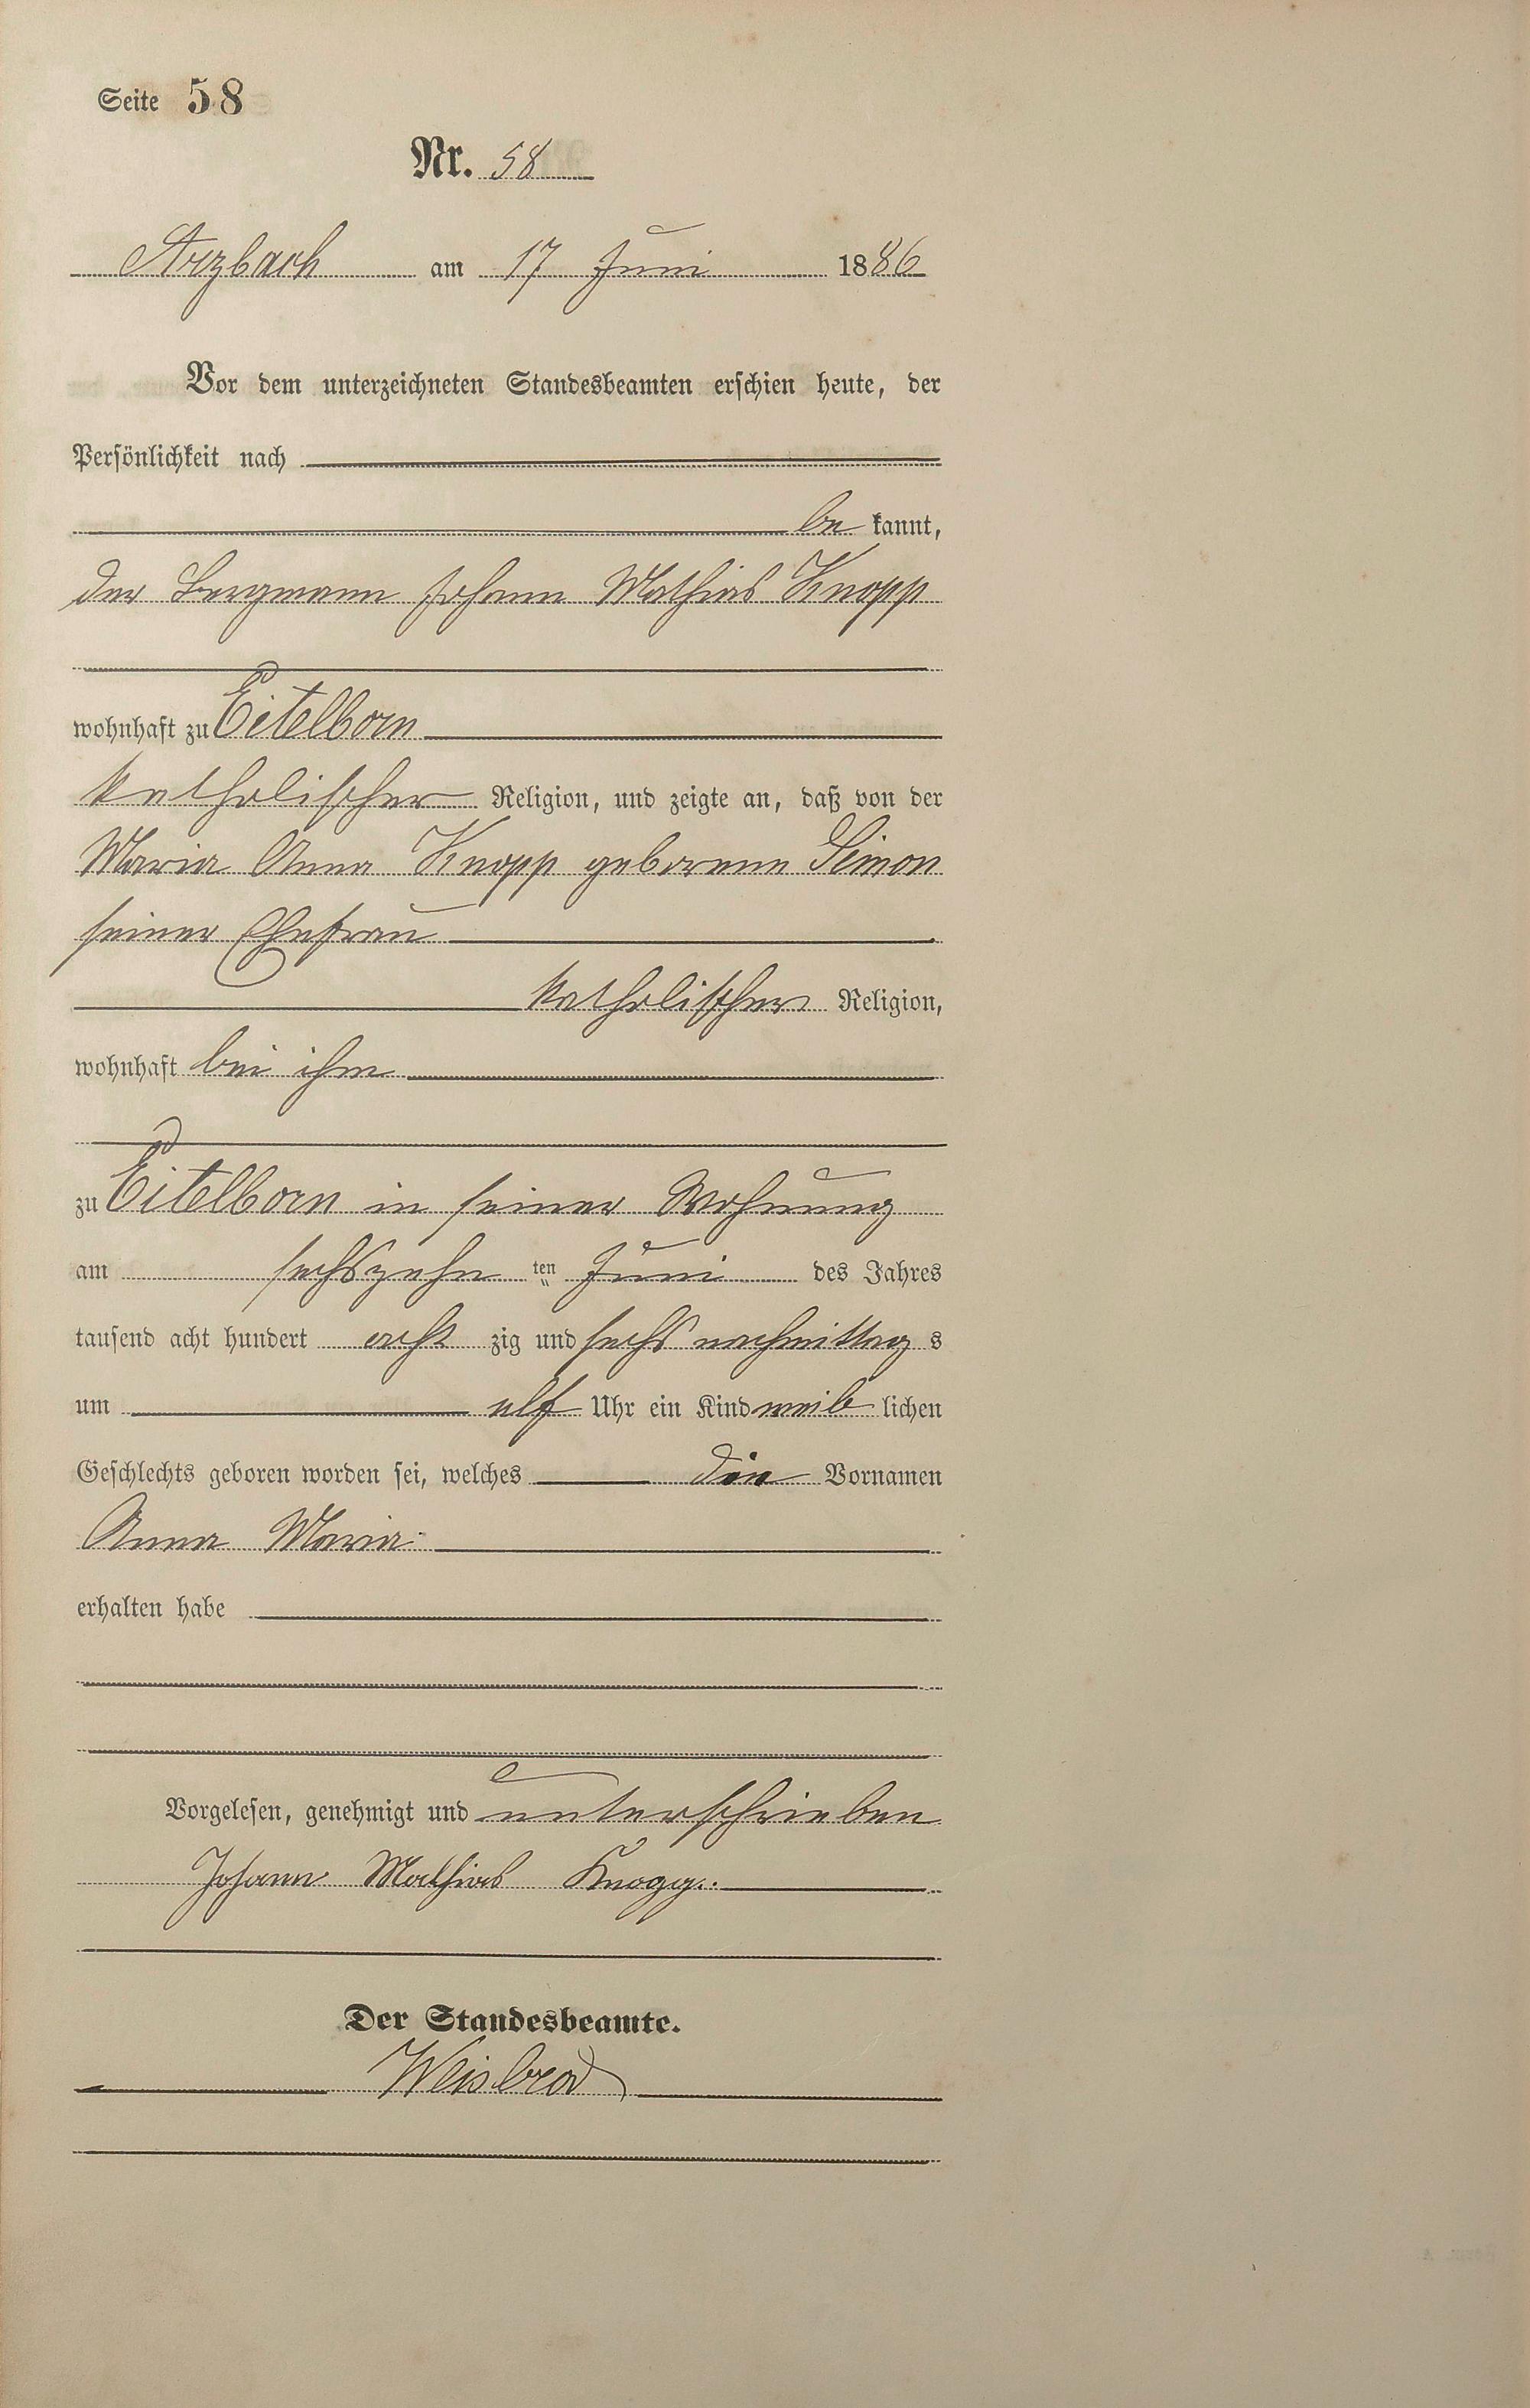 Seite 58
Nr. 58
Arzbach am 17 Juni 1886
Vor dem unterzeichneten Standesbeamten erschien heute, der
Persönlichkeit nach
be kannt,
der Bergmann Johann Mathias Knopp
wohnhaft zu Eitelborn
katholischer Religion, und zeigte an, daß von der
Maria Anna Knopp geborenen Simon
seiner Ehefrau
katholischer Religion,
wohnhaft bei ihm
zu Eitelborn in seiner Wohnung
am sechszehn ten Juni des Jahres
tausend acht hundert acht zig und sechs nachmittag s
um elf Uhr ein Kind weib lichen
Geschlechts geboren worden sei, welches die Vornamen
Anna Maria
erhalten habe
Vorgelesen, genehmigt und unterschrieben
Johann Mathias Knopp.
Der Standesbeamte.
Weisbrod